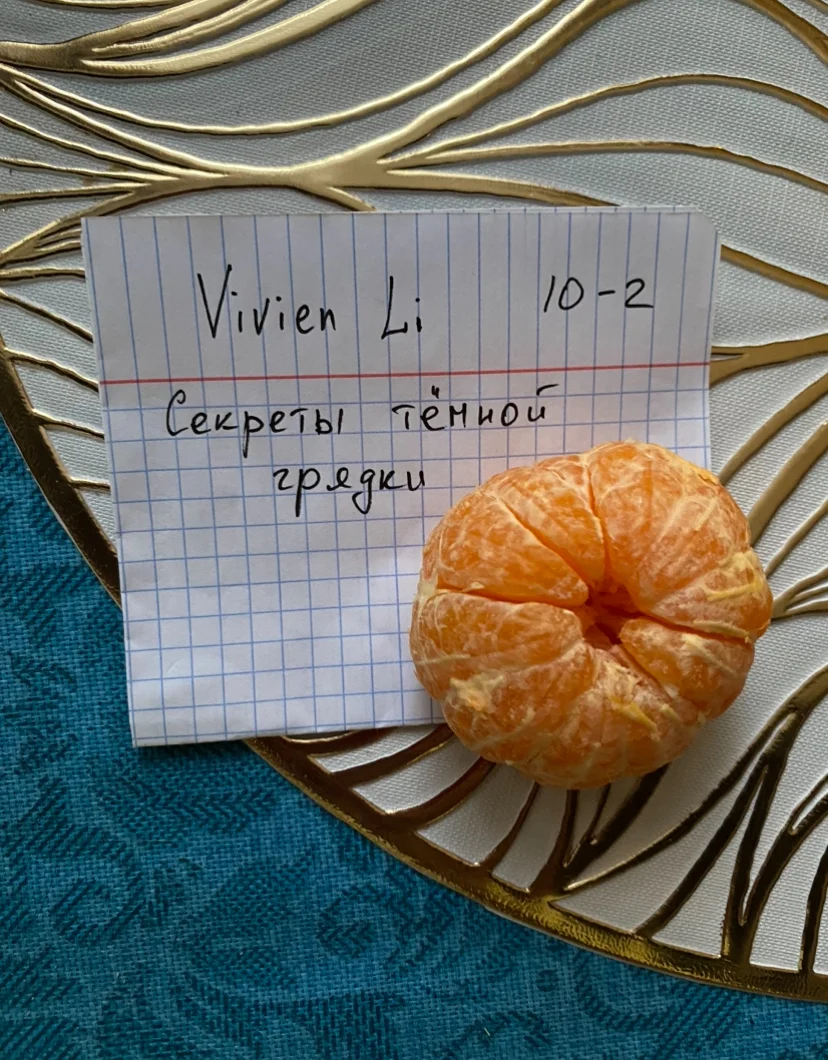 Vivien Li 10-2
Секреты тёмной
грядки